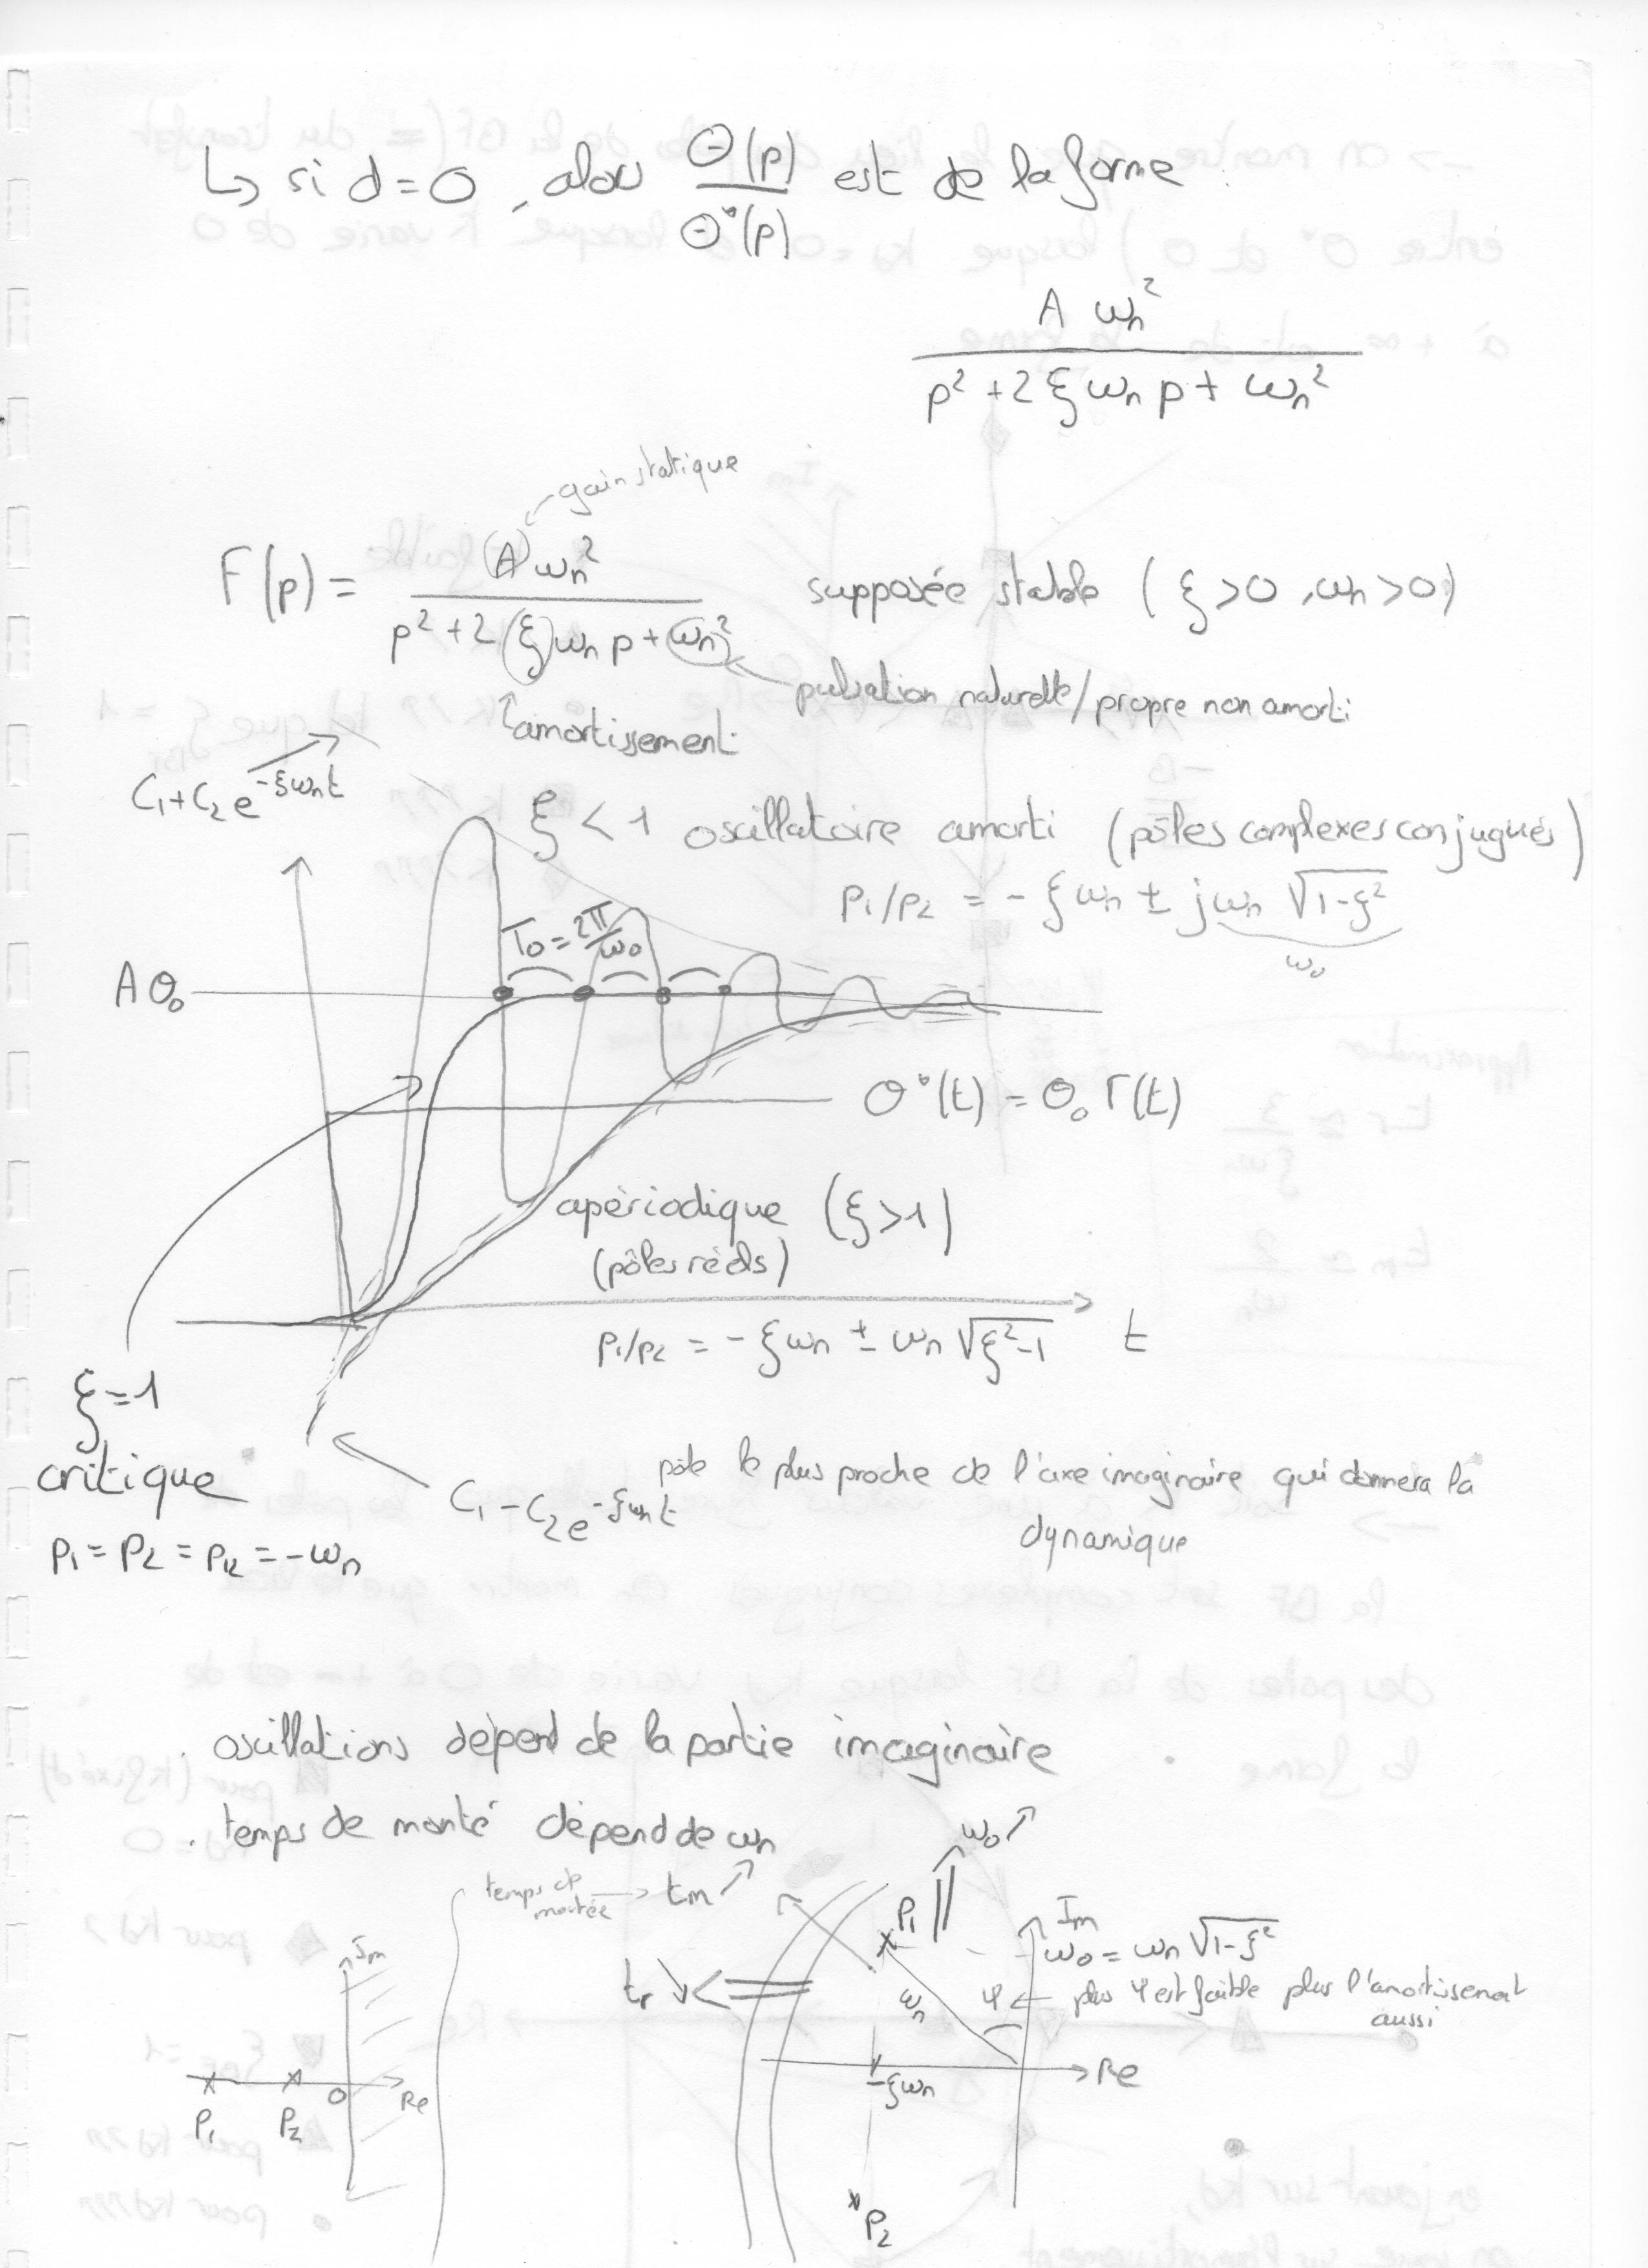 ↳ si d=0, alors Θ(p)/Θ*(p) est de la forme :
A ωn² / (p² + 2 ξ ωn p + ωn²)
gain statique
F(p) = A ωn² / (p² + 2 ξ ωn p + ωn²) supposée stable ( ξ>0 , ωn>0)
pulsation naturelle/propre non amorti
amortissement
C₁+C₂ e^(-ξωnt)
ξ < 1 oscillatoire amorti (pôles complexes conjugués)
P₁/P₂ = - ξ ωn ± jωn √(1-ξ²)
ω₀
T₀ = 2π/ω₀
A θ₀
θ*(t) = θ₀ Γ(t)
apériodique (ξ>1)
(pôles réels)
P₁/P₂ = - ξ ωn ± ωn √(ξ²-1)
t
ξ=1
critique
P₁ = P₂ = P₁₂ = -ωn
C₁ - C₂ e^(-ξωnt)
pôle le plus proche de l'axe imaginaire qui donnera la
dynamique
. oscillations dépend de la partie imaginaire
. temps de monté dépend de ωn
temps de
montée → tm ↗
ω₀ ↗
P₁
Im
ω₀ = ωn √(1-ξ²)
tr ↘
ωn
φ ← plus φ est faible plus l'amortissement
aussi
-ξωn
Re
P₂
Im
O
Re
P₁
P₂